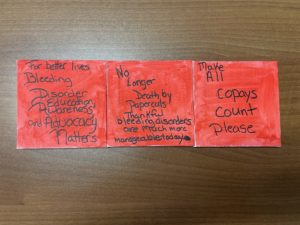 For better lives
Bleeding
Disorder
Education
Awareness
and Advocacy
Matters
No
Longer
Death by
Papercuts
Thankful
bleeding disorders
are much more
manageable today
Make
All
Copays
Count
Please